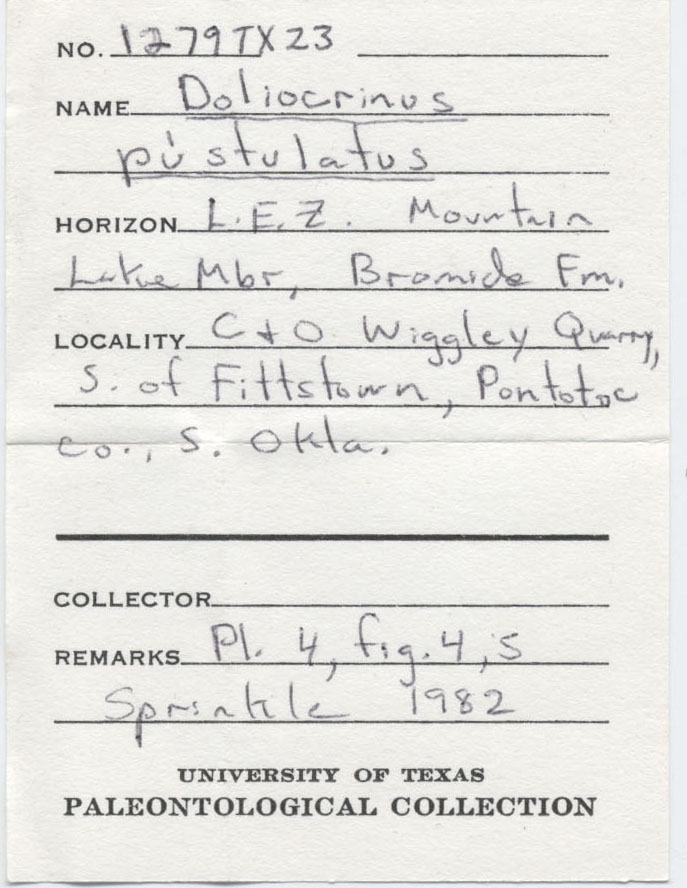 NO. 1279TX23
NAME Doliocrinus
pustulatus
HORIZON L.E.Z. Mountain
Lake Mbr, Bromide Fm.
LOCALITY C + O Wiggley Quarry,
S. of Fittstown, Pontotoc
co., S. Okla.
COLLECTOR
REMARKS Pl. 4, fig. 4,5
Sprinkle 1982
UNIVERSITY OF TEXAS
PALEONTOLOGICAL COLLECTION